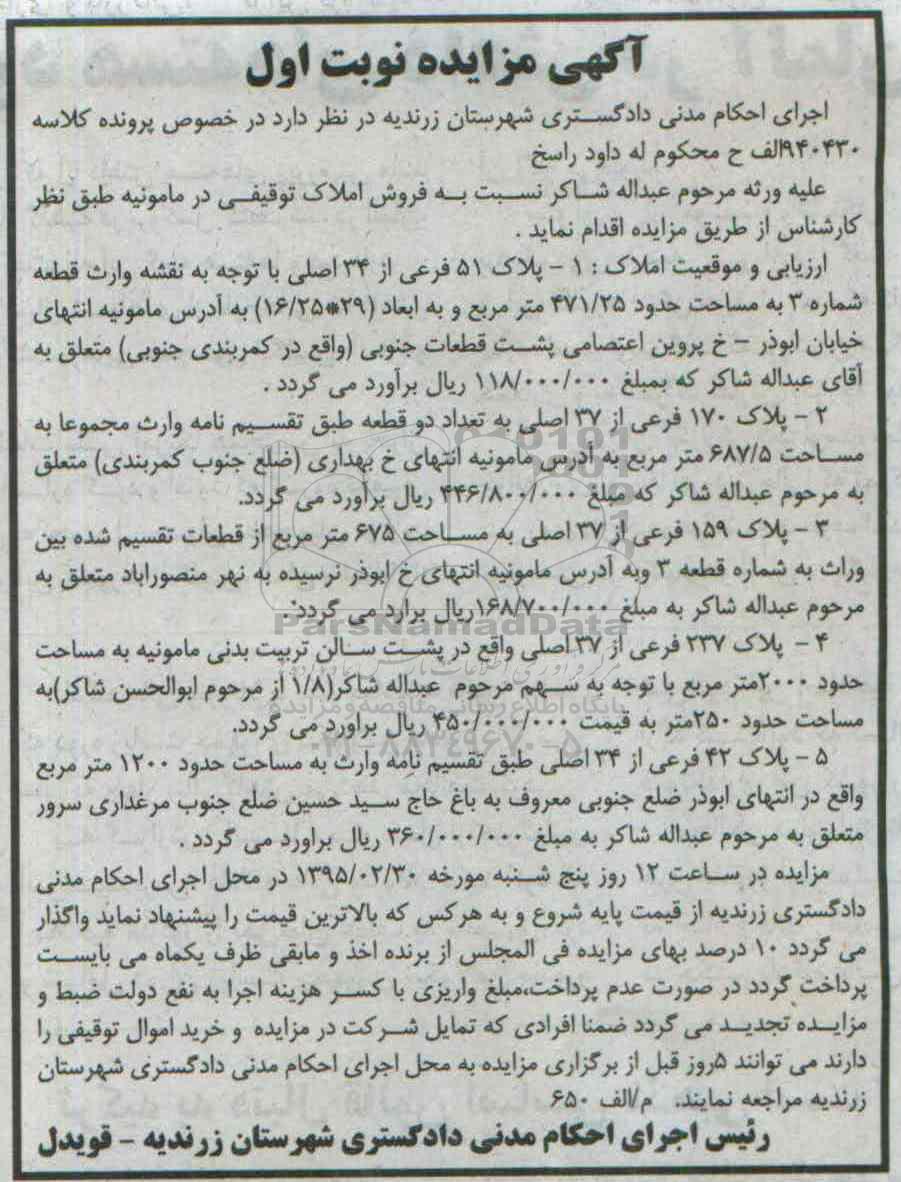 آگهی مزایده نوبت اول
اجرای احکام مدنی دادگستری شهرستان زرندیه در نظر دارد در خصوص پرونده کلاسه
۹۴۰۴۳۰الف ح محکوم له داود راسخ
علیه ورثه مرحوم عبداله شاکر نسبت به فروش املاک توقیفی در مامونیه طبق نظر
کارشناس از طریق مزایده اقدام نماید .
ارزیابی و موقعیت املاک : ۱ – پلاک ۵۱ فرعی از ۳۴ اصلی با توجه به نقشه وارث قطعه
شماره ۳ به مساحت حدود ۴۷۱/۲۵ متر مربع و به ابعاد (۲۹*۱۶/۲۵) به آدرس مامونیه انتهای
خیابان ابوذر – خ پروین اعتصامی پشت قطعات جنوبی (واقع در کمربندی جنوبی) متعلق به
آقای عبداله شاکر که بمبلغ ۱۱۸/۰۰۰/۰۰۰ ریال برآورد می گردد .
۲ – پلاک ۱۷۰ فرعی از ۳۷ اصلی به تعداد دو قطعه طبق تقسیم نامه وارث مجموعا به
مساحت ۶۸۷/۵ متر مربع به آدرس مامونیه انتهای خ بهداری (ضلع جنوب کمربندی) متعلق
به مرحوم عبداله شاکر که مبلغ ۴۴۶/۸۰۰/۰۰۰ ریال برآورد می گردد.
۳ – پلاک ۱۵۹ فرعی از ۳۷ اصلی به مساحت ۶۷۵ متر مربع از قطعات تقسیم شده بین
وراث به شماره قطعه ۳ وبه آدرس مامونیه انتهای خ ابوذر نرسیده به نهر منصوراباد متعلق به
مرحوم عبداله شاکر به مبلغ ۱۶۸/۷۰۰/۰۰۰ریال برارد می گردد.
ParsNamadData
۴ – پلاک ۲۳۷ فرعی از ۳۷ اصلی واقع در پشت سالن تربیت بدنی مامونیه به مساحت
حدود ۲۰۰۰متر مربع با توجه به سهم مرحوم عبداله شاکر(۱/۸ از مرحوم ابوالحسن شاکر)به
پایگاه اطلاع رسانی مناقصه و مزایده
مساحت حدود ۲۵۰متر به قیمت ۴۵۰/۰۰۰/۰۰۰ ریال براورد می گردد.
۰۲۱-۸۸۳۴۹۶۷۰-۵
۵ – پلاک ۴۲ فرعی از ۳۴ اصلی طبق تقسیم نامه وارث به مساحت حدود ۱۲۰۰ متر مربع
واقع در انتهای ابوذر ضلع جنوبی معروف به باغ حاج سید حسین ضلع جنوب مرغداری سرور
متعلق به مرحوم عبداله شاکر به مبلغ ۳۶۰/۰۰۰/۰۰۰ ریال براورد می گردد .
مزایده در ساعت ۱۲ روز پنج شنبه مورخه ۱۳۹۵/۰۲/۳۰ در محل اجرای احکام مدنی
دادگستری زرندیه از قیمت پایه شروع و به هرکس که بالاترین قیمت را پیشنهاد نماید واگذار
می گردد ۱۰ درصد بهای مزایده فی المجلس از برنده اخذ و مابقی ظرف یکماه می بایست
پرداخت گردد در صورت عدم پرداخت،مبلغ واریزی با کسر هزینه اجرا به نفع دولت ضبط و
مزایده تجدید می گردد ضمنا افرادی که تمایل شرکت در مزایده و خرید اموال توقیفی را
دارند می توانند ۵روز قبل از برگزاری مزایده به محل اجرای احکام مدنی دادگستری شهرستان
زرندیه مراجعه نمایند. م/الف ۶۵۰
رئیس اجرای احکام مدنی دادگستری شهرستان زرندیه – قویدل